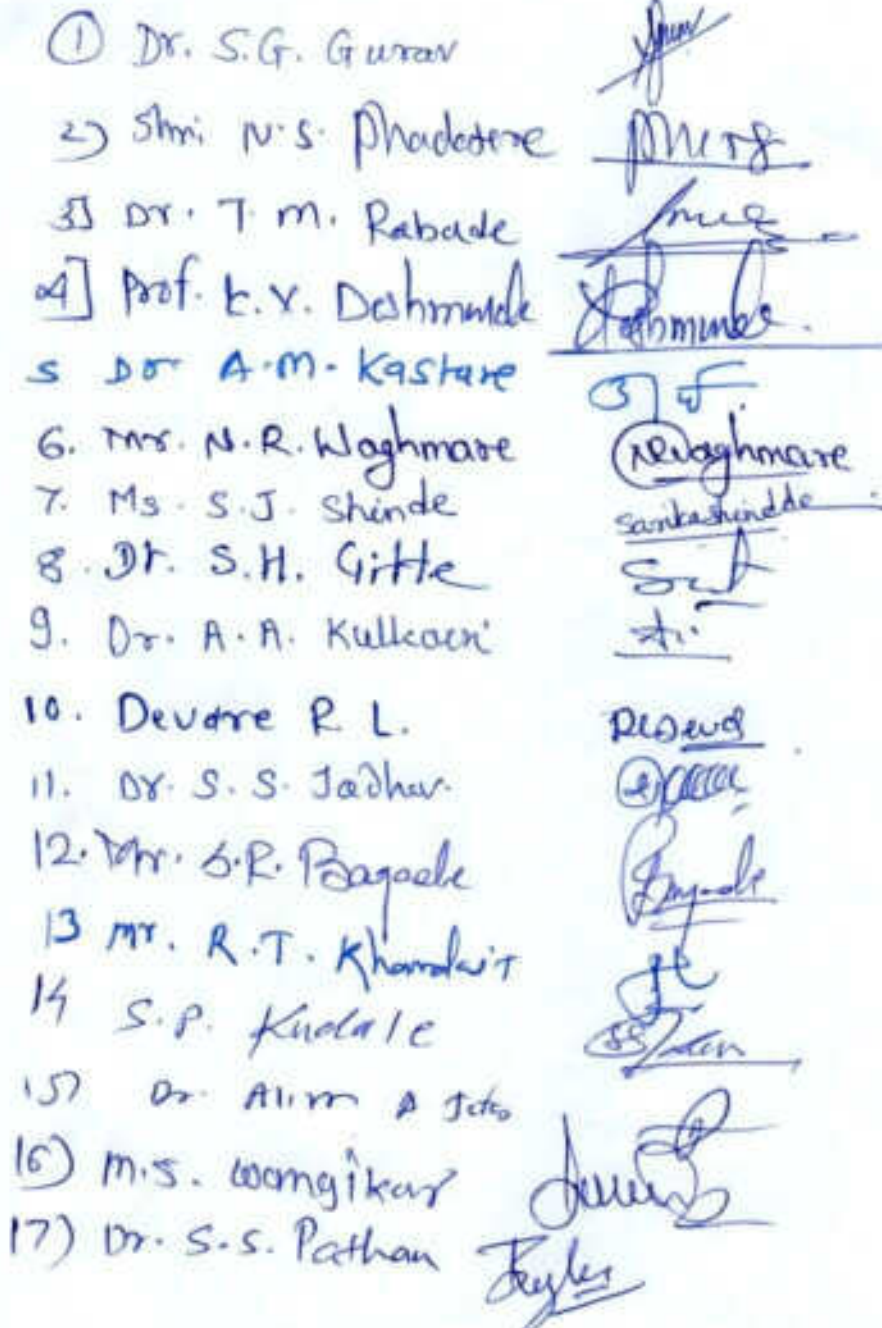 ① Dr. S.G. Gurav
2) Shri N.S. Phadatere
3] Dr. T. M. Rabade
4] Prof. K.V. Deshmukh Deshmukh
5 Dr A.M. Kasture
6. Mr. N.R. Waghmare NRWaghmare
7. Ms. S.J. Shinde Sarikashindde
8. Dr. S.H. Gitte
9. Dr. A.A. Kulkarni
10. Devare R L.
11. Dr. S.S. Jadhav.
12. Mr. S.R. Bagade Bagade
13 Mr. R.T. Khandait
14 S.P. Kudale
15) Dr. Alim A
16) M.S. Wangikar
17) Dr. S.S. Pathan